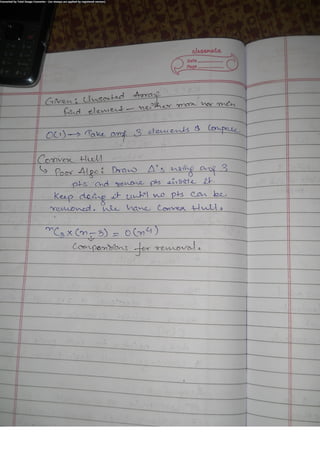 Converted by Total Image Converter - (no stamps are applied by registered version)
classmate
Date
Page
Given: Unsorted Array
find element - neither max nor min
O(1) → Take any 3 elements & compare
Convex Hull
↳ Poor Algo: Draw Δ's using any 3
pts and remove pts inside it
Keep doing it until no pts can be
removed. We have Convex Hull.
ⁿC₃ x (n-3) = O(n⁴)
Comparisions for removal.